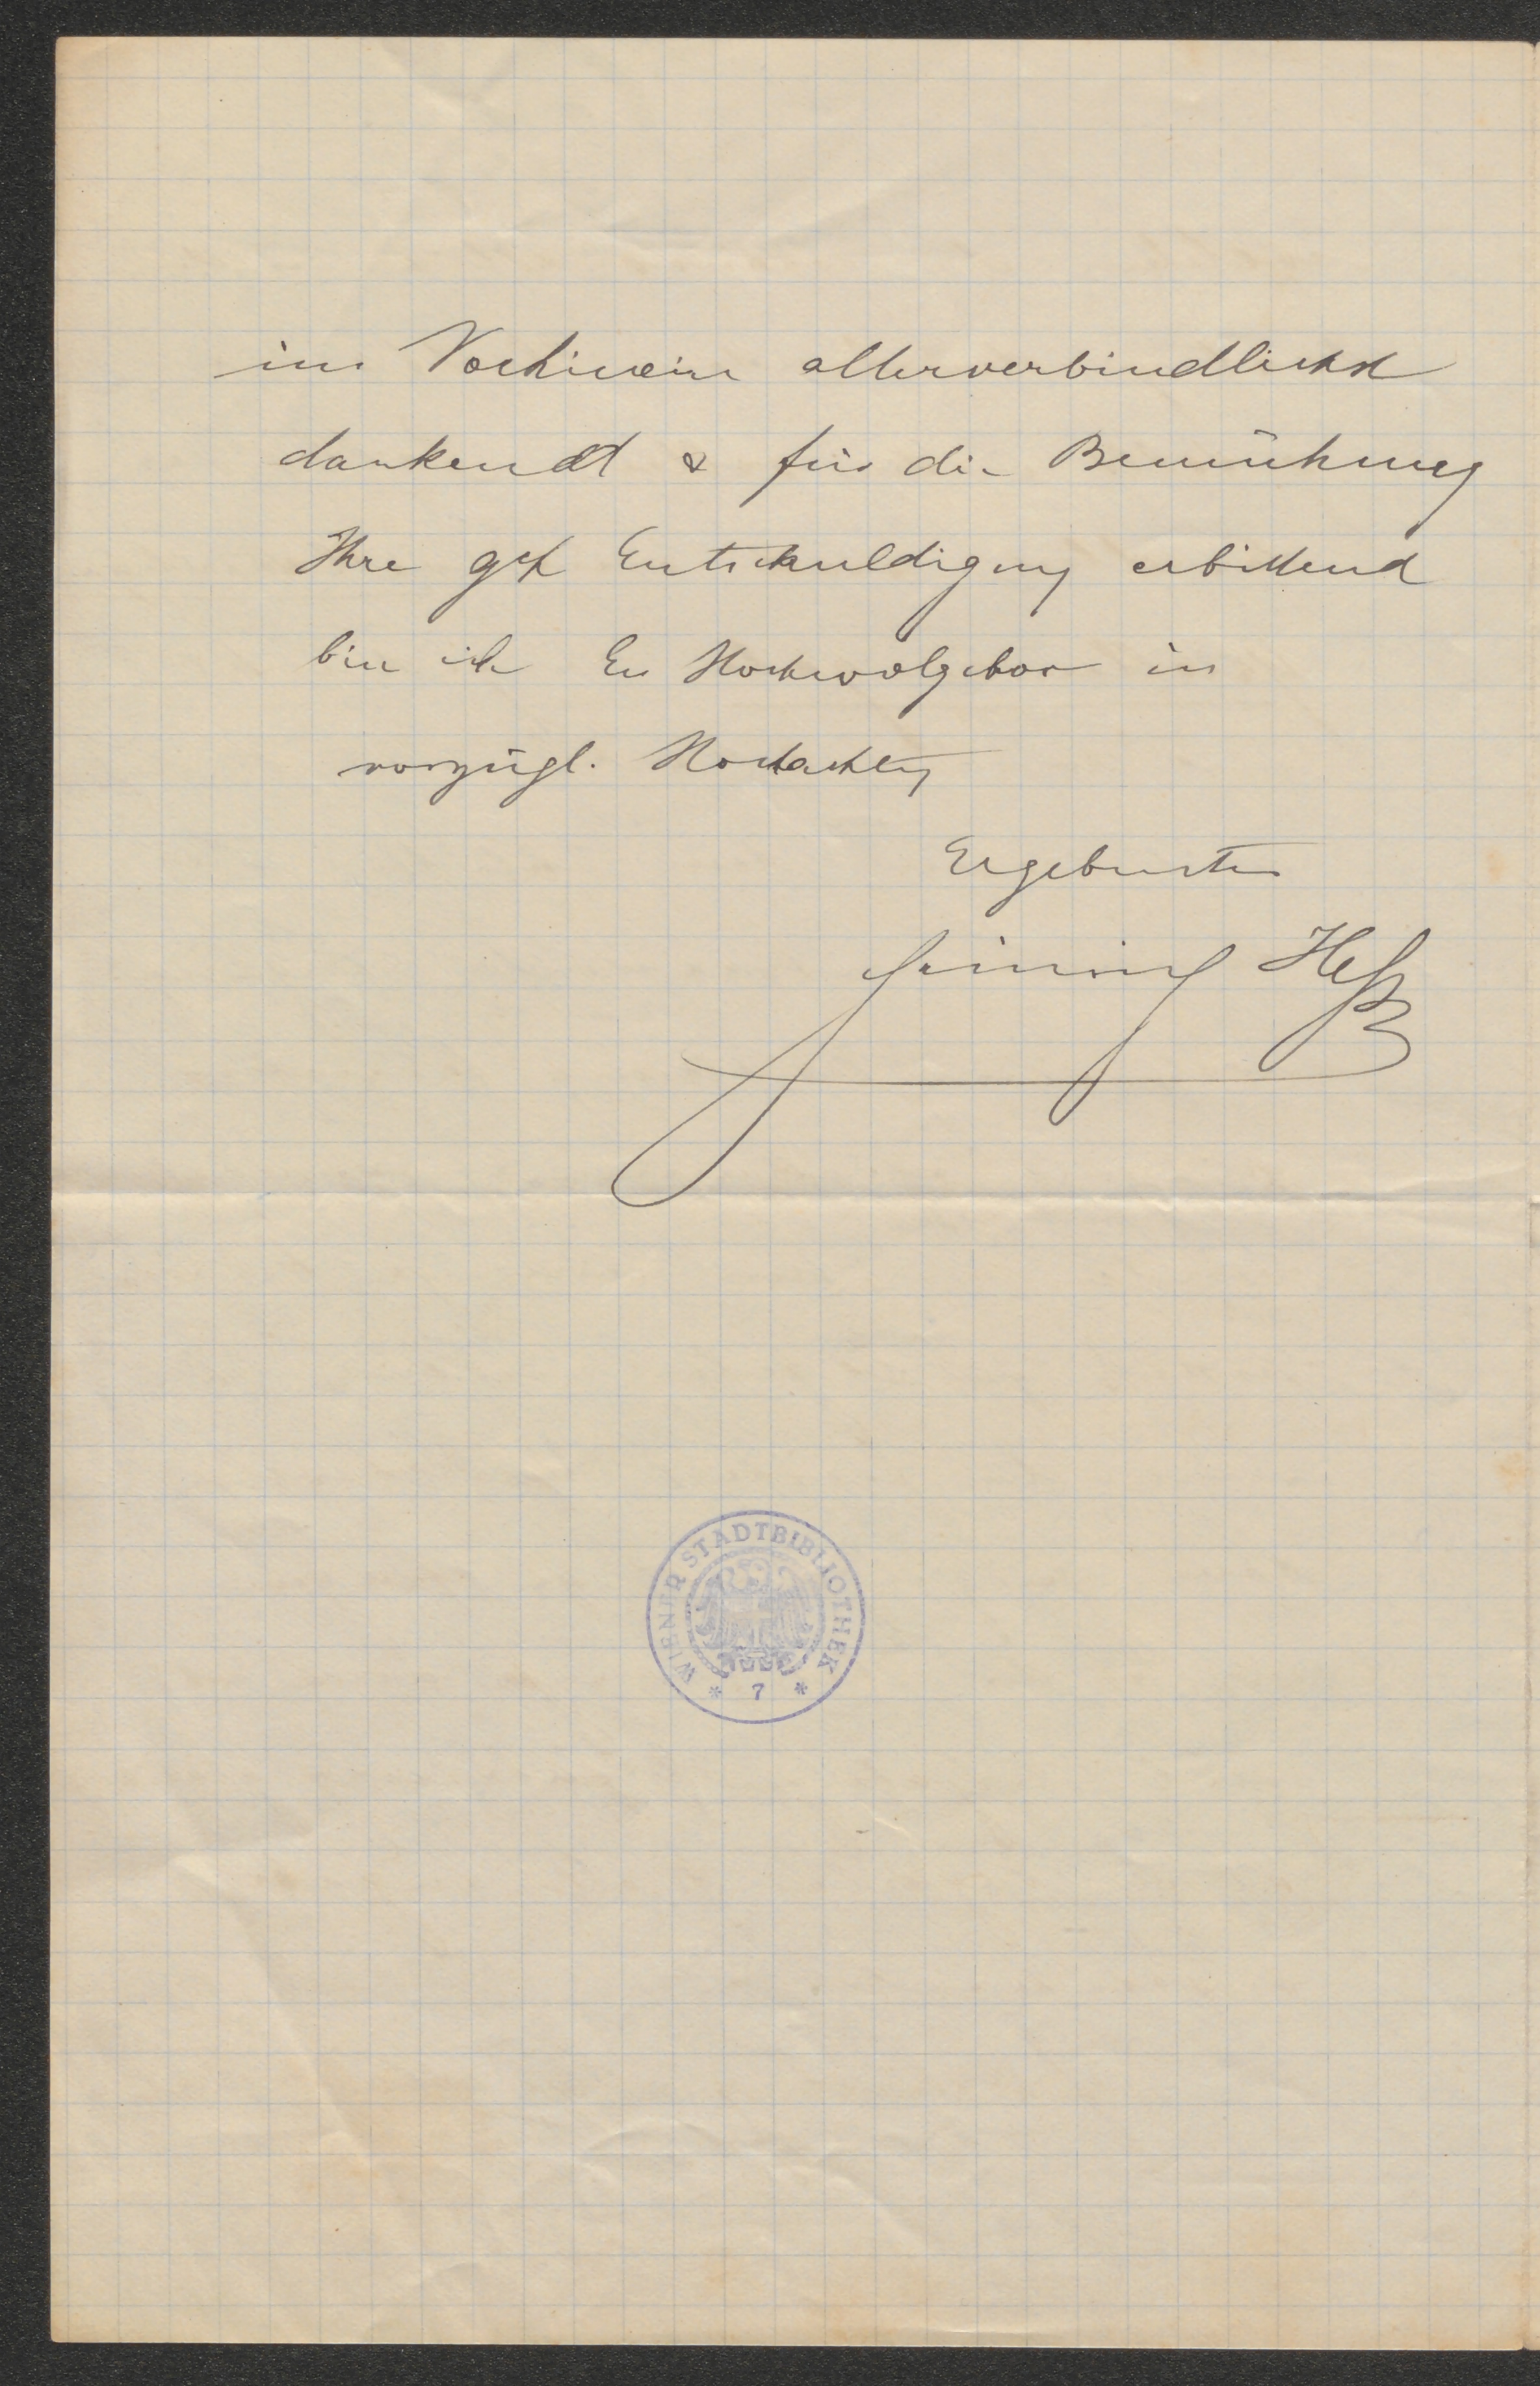 im Vorhinein allerverbindlichst
dankendst & für die Bemühung
Ihre gef Entschuldigung erbittend
bin ich Eu Hochwolgebor in
vorzügl. Hochachtg
Ergebenster
Heinrich Heß
WIENER STADTBIBLIOTHEK
* 7 *